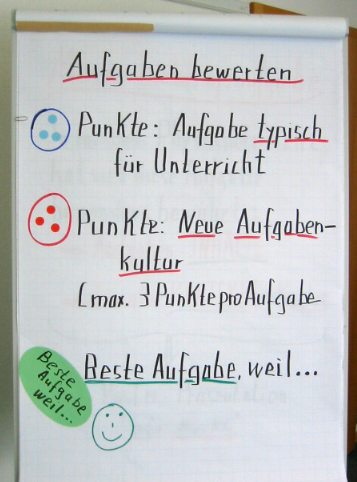 Aufgaben bewerten
Punkte: Aufgabe typisch
für Unterricht
Punkte: Neue Aufgaben-
kultur
(max. 3 Punkte pro Aufgabe
Beste Aufgabe, weil...
Beste
Aufgabe
weil...